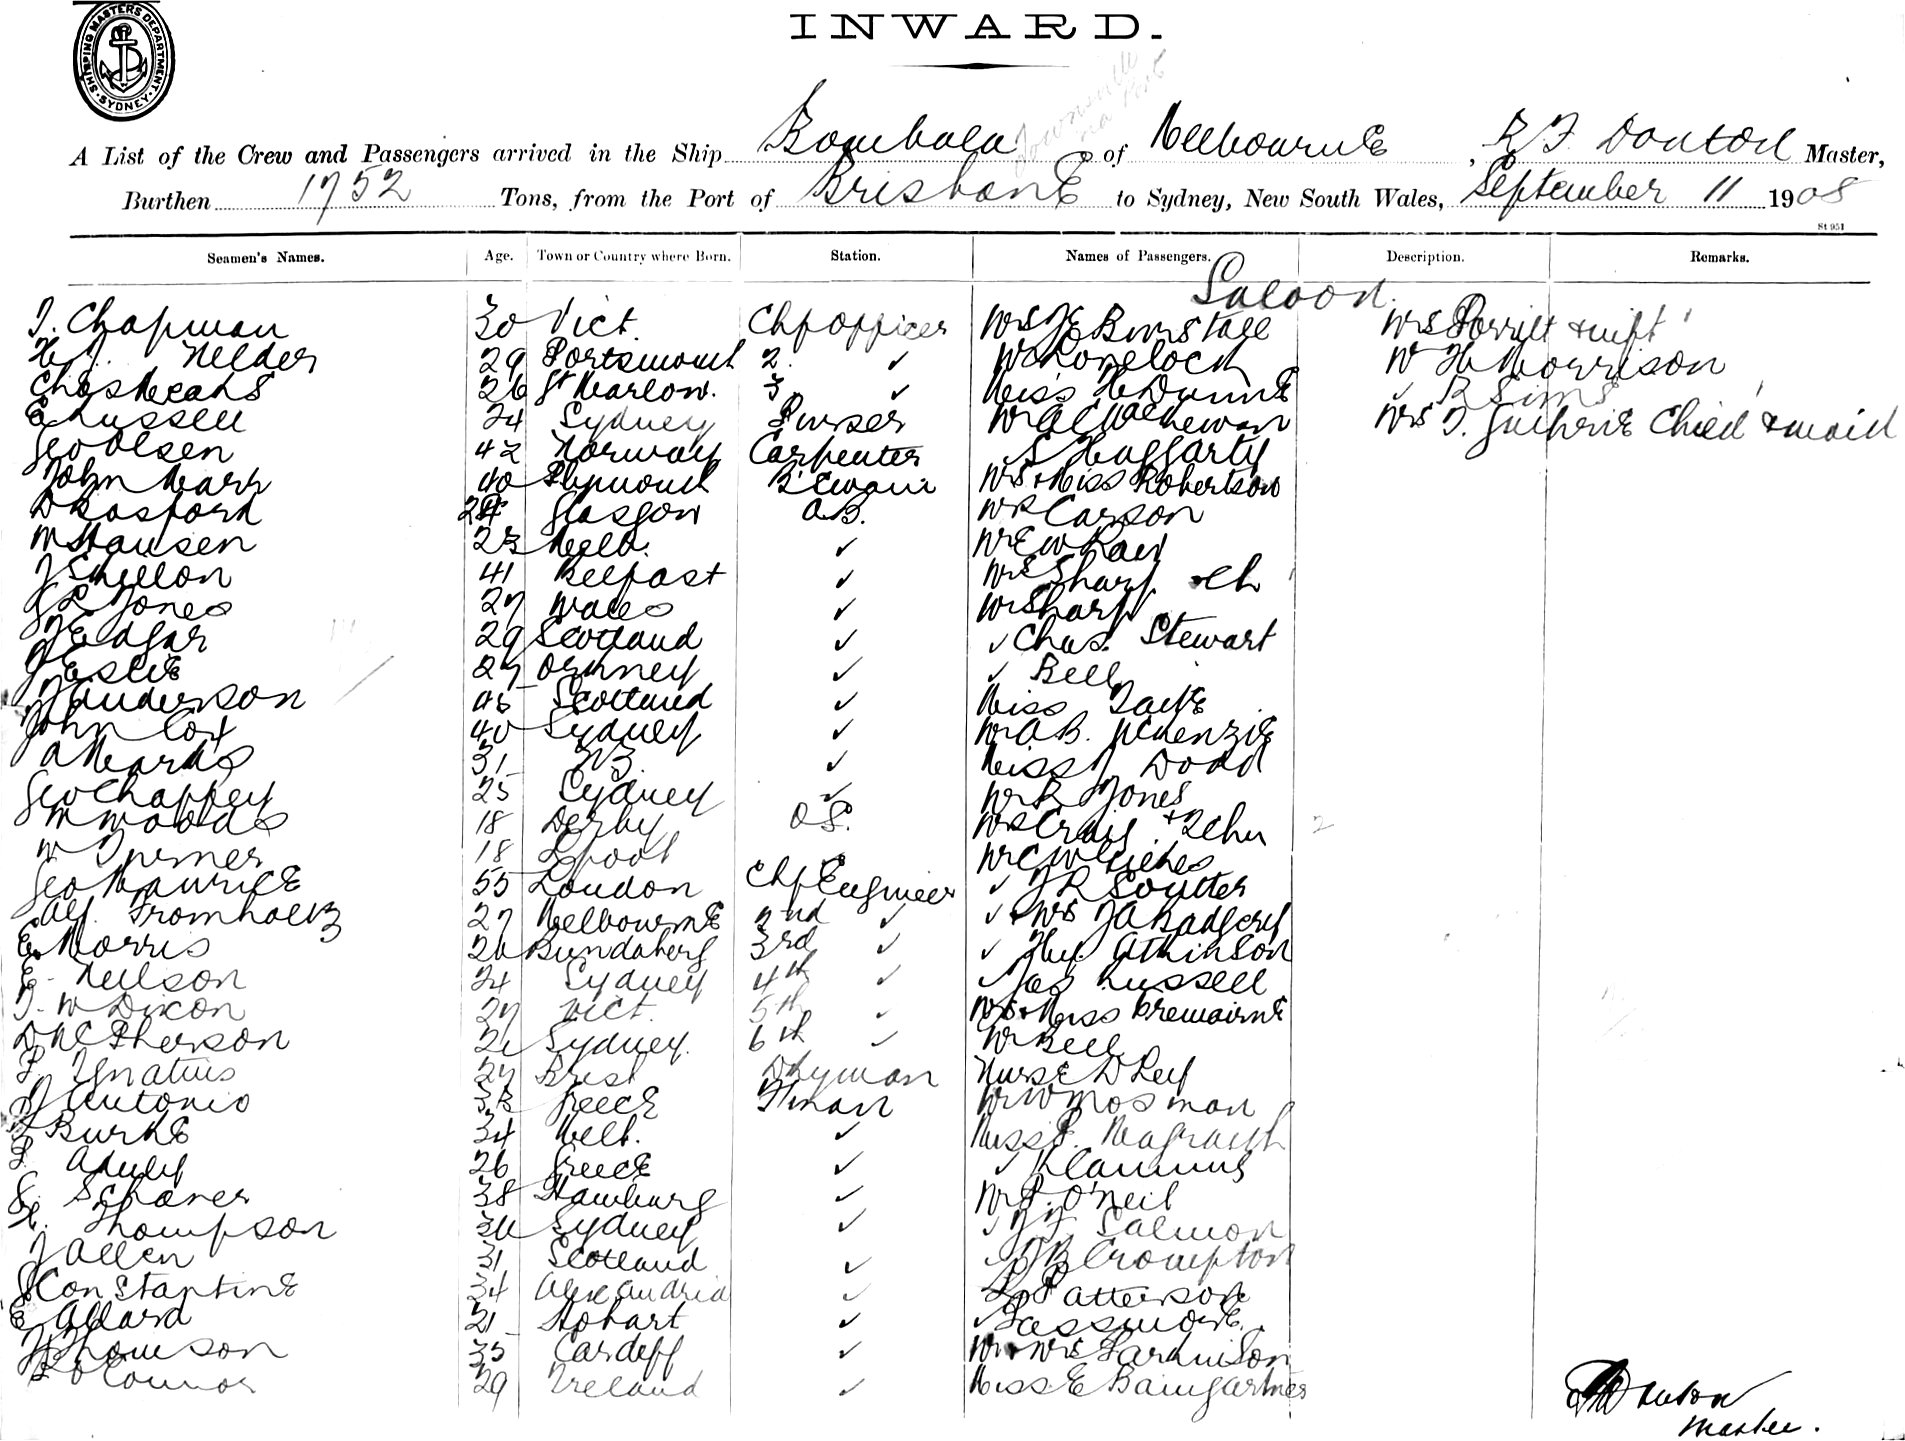 SHIPPING MASTERS DEPARTMENT. SYDNEY.
INWARD.
Townsville via Port
A List of the Crew and Passengers arrived in the Ship Bombala of Melbourne, Master,
Burthen 1752 Tons, from the Port of Brisbane to Sydney, New South Wales, September 11 1908
St 951
Seamen's Names. Age. Town or Country where Born. Station. Names of Passengers. Description. Remarks.
Saloon.
T. Chapman 30 Vict. Chf Officer Mrs Burstall Mrs & inft
H. J. Nelder 29 Portsmouth 2. ✓ Mr Lovelock Mr H Morrison
Chas Meahs 26 Gt Marlow. 3 ✓ Miss H Dunne ✓ R Sims
E Russell 24 Sydney Purser Mr A C Mrs T. Guthrie Child & maid
Geo Olsen 42 Norway Carpenter S Haggarty
John Marr 40 Plymouth Mrs & Miss Robertson
D Basford 24 Glasgow A.B. Mr Carson
M Hansen 23 Melb. ✓ Mr E W
J Skellon 41 Belfast ✓ Mrs Sharp & ch
G L Jones 27 Wales ✓ Mr Sharp
J Edgar 29 Scotland ✓ ✓ Chas. Stewart
J Eslie 27 Orkney ✓ ✓ Bell
J Anderson 45 Scotland ✓ Miss
John Cox 40 Sydney ✓ Mr A B. McKenzie
A Marks 31 NZ. ✓ Miss J Dodd
Geo Chappey 25 Sydney ✓ Mr R Jones
M Woods 18 Derby O.S. Mrs Craig & 2 chn 2
W Turner 18 L'pool Mr C W
Geo Maurice 55 London Chf Engineer ✓ J R Soutter
Alf. Fromholtz 27 Melbourne 2nd ✓ ✓ & Mrs J A Badgery
E. Morris 26 Bundaberg 3rd ✓ ✓ Hy. Atkinson
E. Neilson 24 Sydney 4th ✓ ✓ Jas Russell
T. W Dixon 27 Vict. 5th ✓ Mrs & Miss
D McPherson 26 Sydney. 6th ✓ Mr Bell
F. Ignatius 27 Brest Dkyman Nurse D
J Antonio 33 Greece F'man Mr W Mosman
J Burke 34 Melb. ✓ Miss
F. 26 Greece ✓ ✓
G. Schaner 38 Hamburg ✓ Mr P. O'Neil
H. Thompson 36 Sydney ✓ ✓ J F Salmon
J Allen 31 Scotland ✓ ✓ J B Crompton
G Constantine 34 Alexandria ✓ L Patterson
E Allard 21 Hobart ✓ ✓
J Thomson 35 Cardiff ✓ Mr & Mrs
B O'Connor 29 Ireland ✓ Miss E Baumgartner
Master.